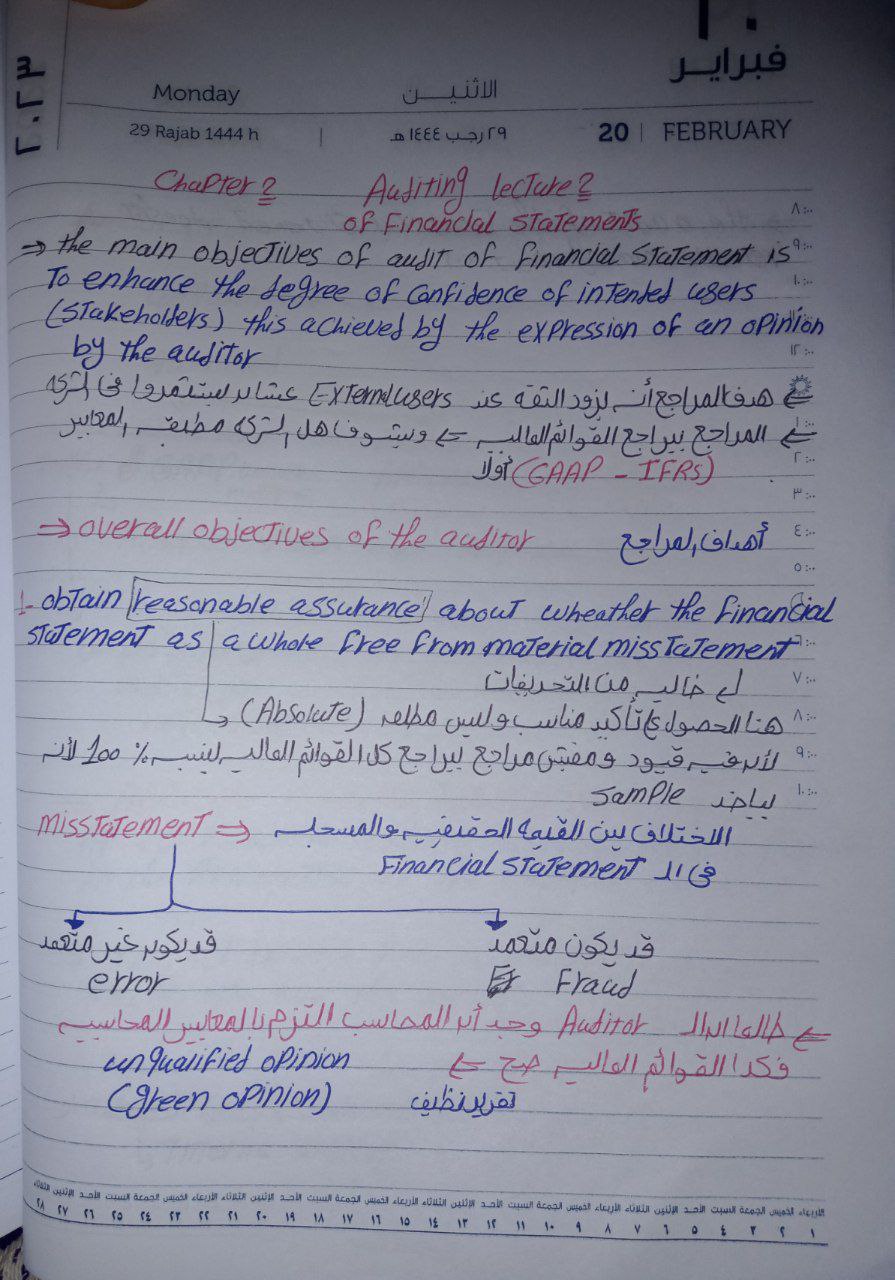 ٢٠٢٣
٢٠
فبراير
Monday الاثنين
29 Rajab 1444 h | ٢٩ رجب ١٤٤٤ هـ 20 | FEBRUARY
Chapter 2 Auditing lecture 2
of Financial Statements
٨:٠٠
⇒ the main objectives of audit of financial statement is
٩:٠٠
To enhance the degree of confidence of intended users
١٠:٠٠
(stakeholders) this achieved by the expression of an opinion
by the auditor
١٢:٠٠
⇐ هدف المراجع أنه يزود الثقة عند External users عشان يستثمروا فى الشركة
⇐ المراجع بيراجع القوائم المالية ⇐ وبيشوف هل الشركة مطبقة المعايير
١:٠٠
(GAAP - IFRs) أولاً
٢:٠٠
٣:٠٠
⇒ overall objectives of the auditor أهداف المراجع
٤:٠٠
٥:٠٠
1- obtain reasonable assurance about wheather the financial
statement as a whole free from material misstatement
٦:٠٠
أى خالية من التحريفات
٧:٠٠
هنا الحصول على تأكيد مناسب وليس مطلق (Absolute)
٨:٠٠
لأن فيه قيود ومفيش مراجع بيراجع كل القوائم المالية بنسبة 100% لأنه
٩:٠٠
بياخد sample
١٠:٠٠
misstatement ⇒ الاختلاف بين القيمة الحقيقية والمسجلة
فى الـ Financial statement
قد يكون غير متعمد قد يكون متعمد
error Fraud
⇐ طالما الـ Auditor وجد أن المحاسب التزم بالمعايير المحاسبية
فكدا القوائم المالية صح ⇐ unqualified opinion
تقرير نظيف (green opinion)
الأربعاء الخميس الجمعة السبت الأحد الإثنين الثلاثاء الأربعاء الخميس الجمعة السبت الأحد الإثنين الثلاثاء الأربعاء الخميس الجمعة السبت الأحد الإثنين الثلاثاء الأربعاء الخميس الجمعة السبت الأحد الإثنين الثلاثاء
١ ٢ ٣ ٤ ٥ ٦ ٧ ٨ ٩ ١٠ ١١ ١٢ ١٣ ١٤ ١٥ ١٦ ١٧ ١٨ ١٩ ٢٠ ٢١ ٢٢ ٢٣ ٢٤ ٢٥ ٢٦ ٢٧ ٢٨